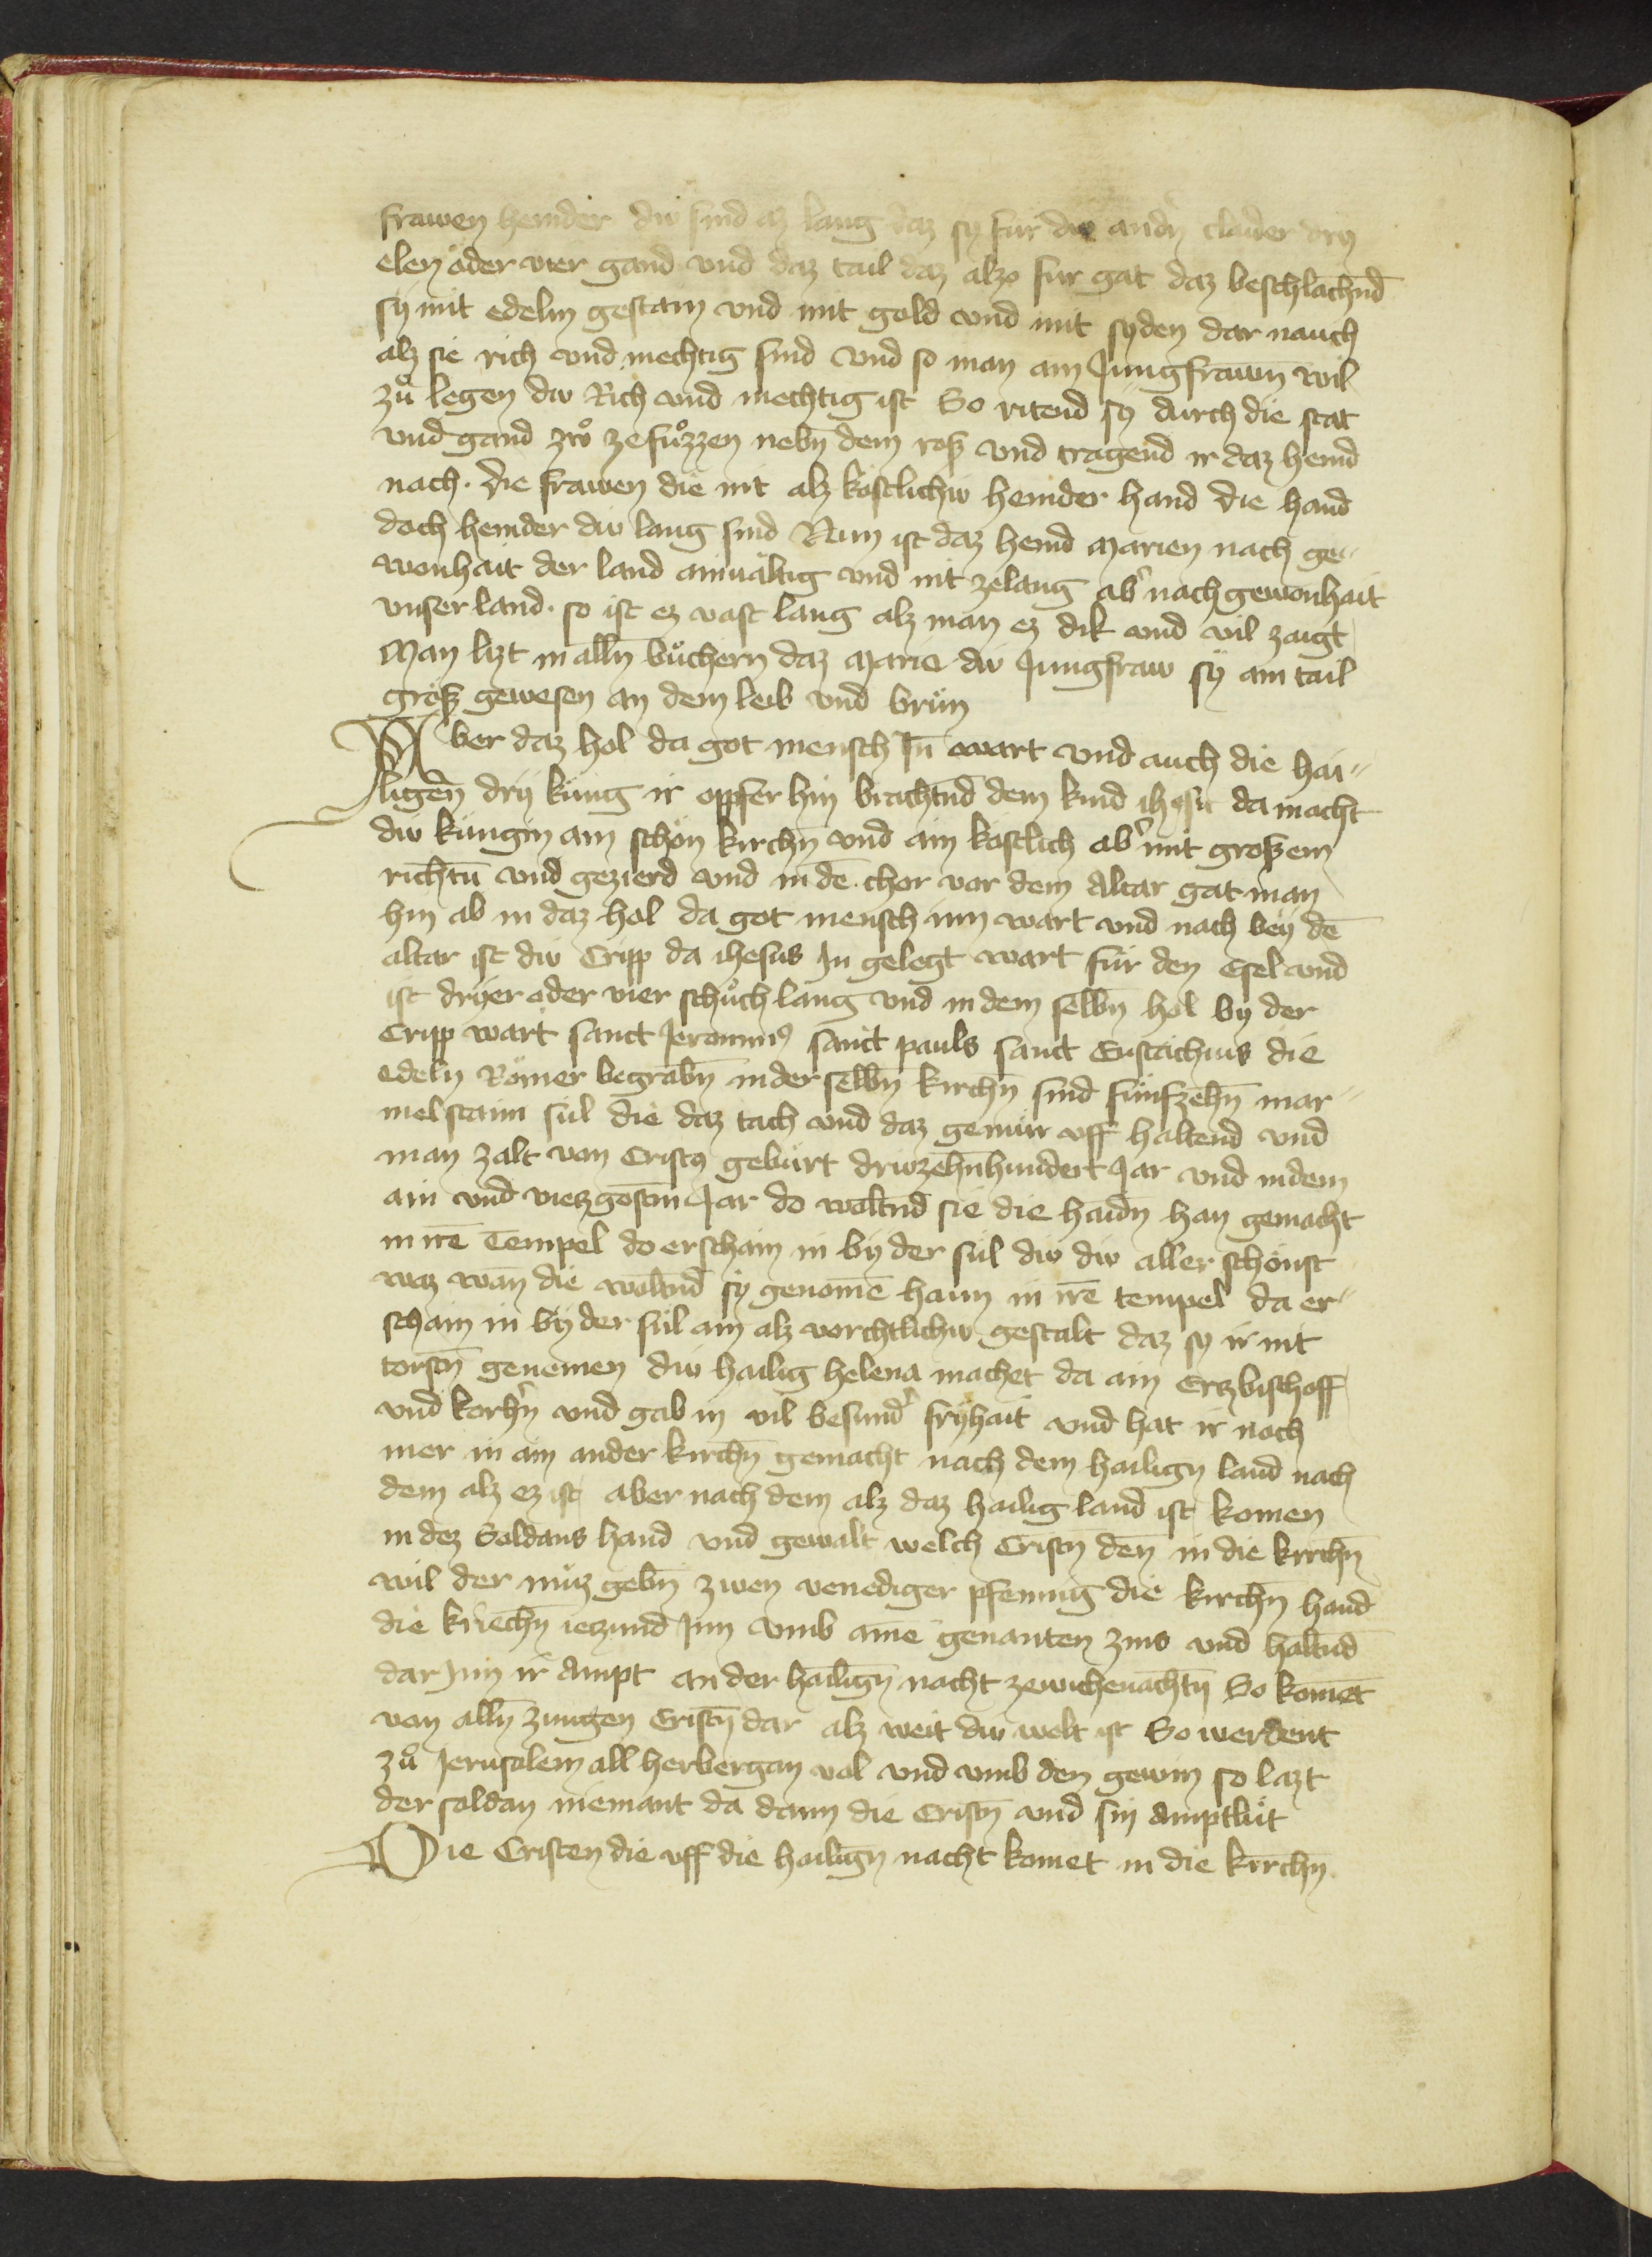 frawen hemder diu sind alz lang daz sy für diu andn̄ claider dry
elen oder vier gand vnd daz tail daz alzo für gat daz beschlachnd
sy mit edelm gestain vnd mit gold vnd mit syden dar nauch
alz sie rich vnd mechtig sind vnd so man ain Jungfrawn̄ wil
zů legen diu Rich vnd mechtig ist So ritend sy durch die stat
vnd gand zwo zefůzzen nebn̄ dem roß vnd tragend ir daz hemd
nach. die frawen die nit alz kostlichiu hemder hand die hand
doch hemder diu lang sind Nun ist daz hemd marien nach ge-
wonhait der land ainuältig vnd nit zelang ab' nach gewonhait
vnser land. so ist ez vast lang alz man ez dik vnd vil zaigt
Man lizt in alln̄ bůchern daz marie diu Jungfraw sy ain tail
größ gewesen an dem leib vnd brün
Uber daz hol da got mensch In̄ wart vnd auch die hai-
ligen̄ dry küng ir oppfer hin brachtnd dem kind ihesu da macht
diu küngin ain schön kirchn̄ vnd ain köstlich ab' mit großem
richtū vnd gezierd vnd in dē chor vor dem Altar gat man
hin ab in daz hol da got mensch inn wart vnd nach bey dē
altar ist diu Cripp da ihesus In gelegt wart für den Esel vnd
ist dryer oder vier schůch lang vnd in dem selbn̄ hol by der
Cripp wart sanct Jeronim9 sanct pauls sanct Eustachius die
edeln Römer begrabn̄ in der selbn̄ kirchn̄ sind fünfzehn̄ mar-
melstain sül die daz tach vnd daz gemür vff haltend vnd
man zalt von Crist9 gebürt driuzehn̄hundert Jar vnd in dem
ain vnd vierzgostn̄ Jar do woltnd sie die haidn̄ han gemacht
in irē Tempel do erschain in by der sül diu diu aller schönst
waz wān die woltnd sy genomē haun in irē tempel da er-
schain in by der sül ain alz vorchtlichiu gestalt daz sy ir nit
torstn̄ genemen diu hailig helena machet da ain Ertzbischoff
vnd korhn̄ vnd gab in vil besund' fryhait vnd hat ir noch
mer in ain ander kirchn̄ gemacht nach dem hailign̄ land nach
dem alz ez ist aber nach dem alz daz hailig land ist komen
in dez Soldans hand vnd gewalt welch Cristn̄ den̄ in die kirchn̄
wil der můz gebn̄ zwen venediger pfening die kirchn̄ hand
die kriechn̄ ietzund Inn vmb ainē genanten zins vnd haltnd
dar Inn ir Ampt an der hailign̄ nacht zewichenachtn̄ So komēt
von alln̄ zungen Cristn̄ dar alz weit diu welt ist So werdent
zů Jerusalem all herbergan vol vnd vmb den gewin so lazt
der soldan niemant da dann die Cristn̄ vnd sin Amptlüt
Die Cristen die vff die hailign̄ nacht komet in die kirchn̄